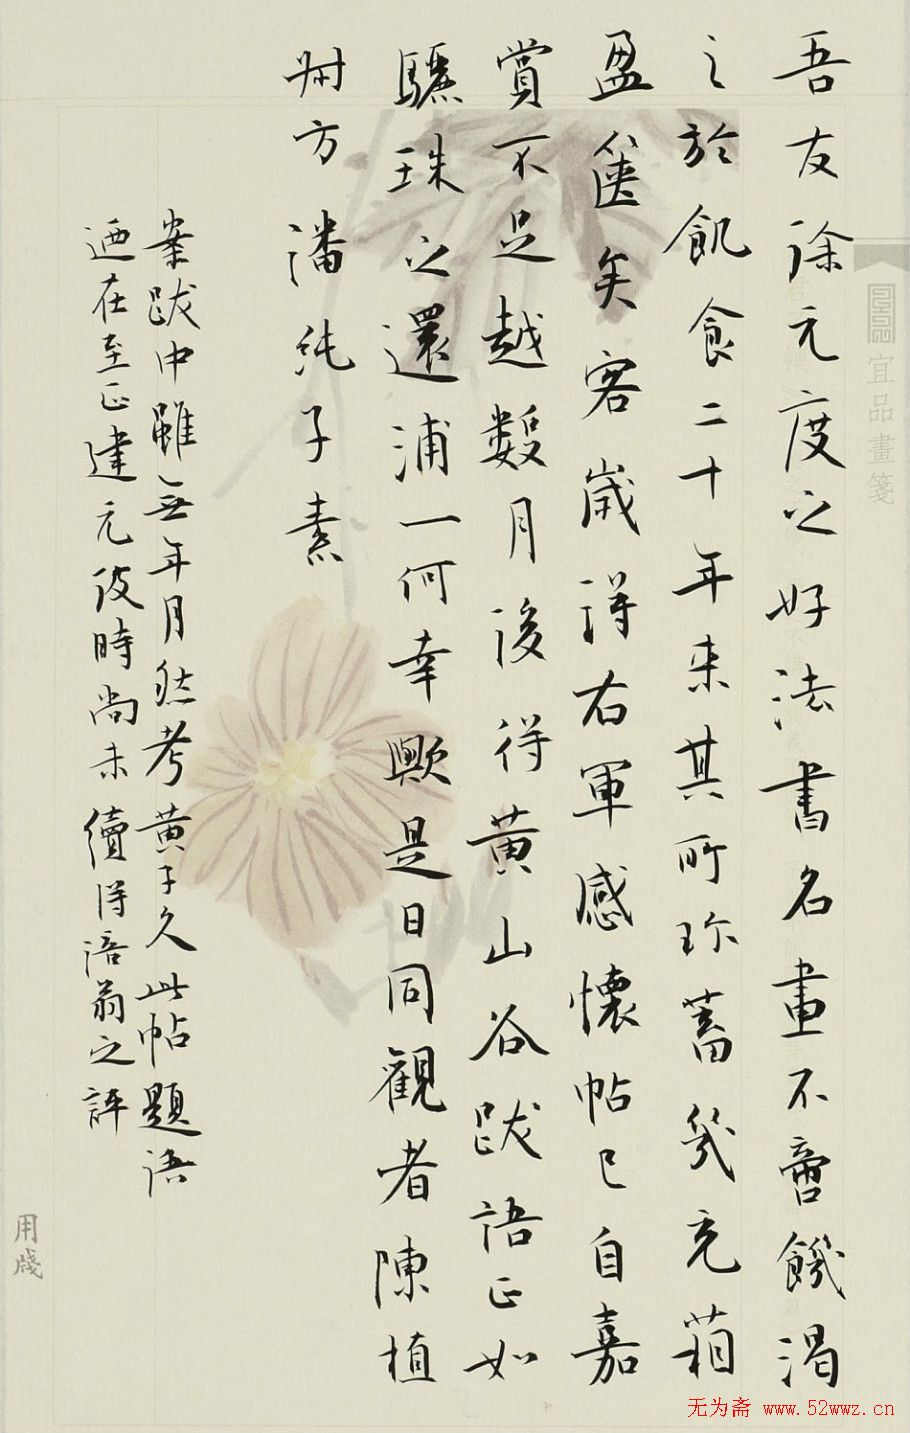 吾友徐元度之好法書名畫不啻饑渴
之於飢食二十年来其所珎蓄幾充葙
盈篋矣客歲得右軍感懷帖已自嘉
賞不足越數月後得黄山谷跋語正如
驪珠之還浦一何幸歟是日同觀者陳植
叔方潘純子素
案跋中雖無年月然考黄子久此帖題語
迺在至正建元彼時尚未續得涪翁之評
宜品畫箋
用牋
无为斋 www.52wwz.cn